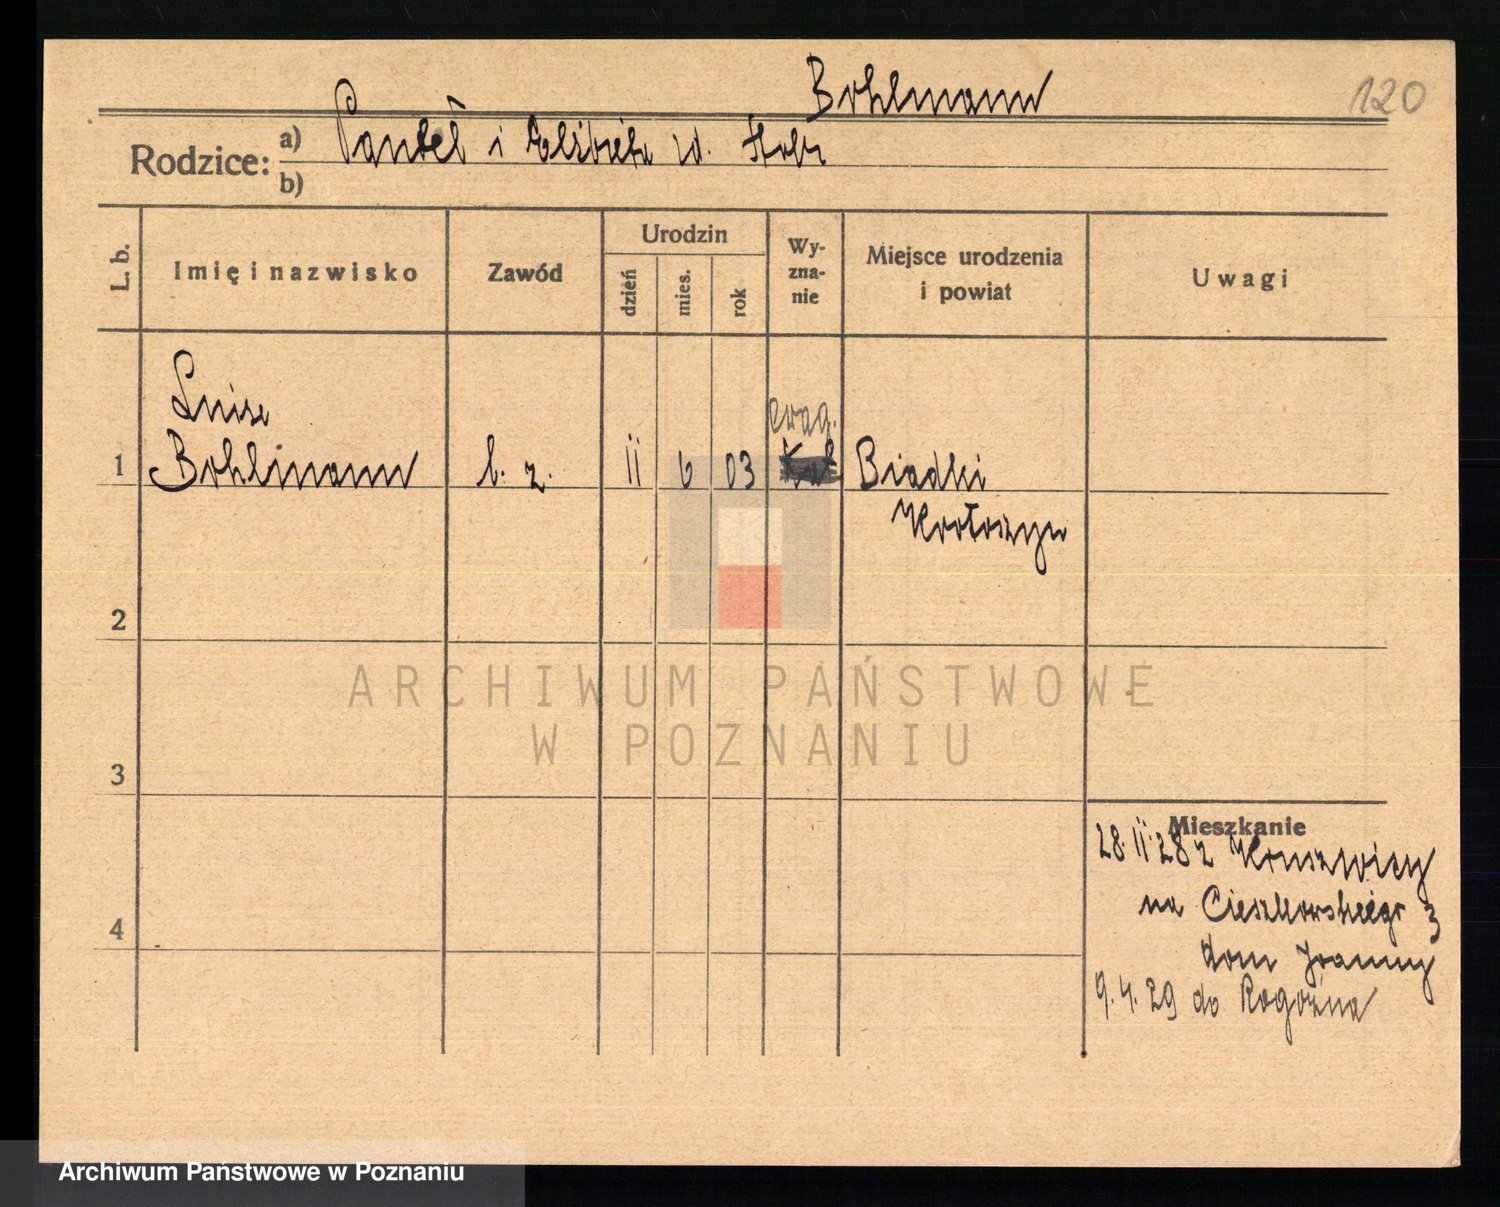 Bohlmann
120
Rodzice:
a) Paweł i Elżbieta zd. Stolz
b)
L. b.
Imię i nazwisko
Zawód
Urodzin
dzień
mies.
rok
Wy-
zna-
nie
Miejsce urodzenia
i powiat
Uwagi
Luise
ewag.
1 Bohlmann b. z. 11 6 03 Kat Biadki
Krotoszyn
2
3
4
Mieszkanie
28.11.28 z Kruszwicy
na Cieszkowskiego 3
dom Joanny
9.4.29 do Rogoźna
ARCHIWUM PAŃSTWOWE
W POZNANIU
Archiwum Państwowe w Poznaniu